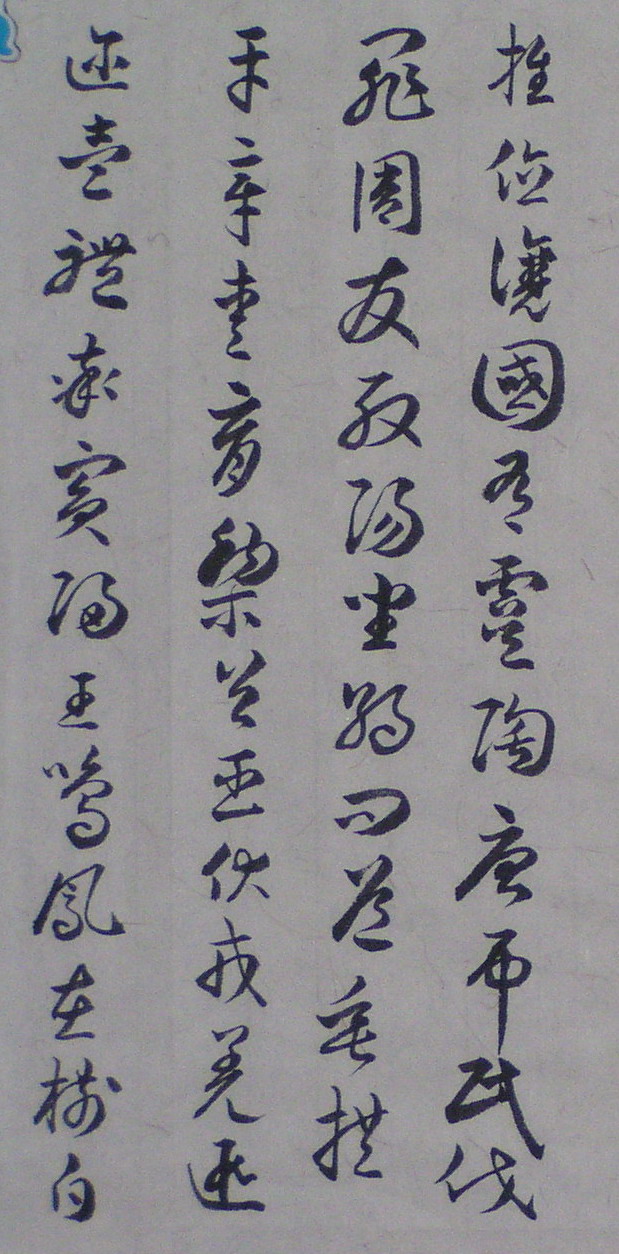 推位讓國有虞陶唐弔民伐
罪周發殷湯坐朝問道垂拱
平章愛育黎首臣伏戎羌遐
迩壹體率賓歸王鳴鳳在樹白